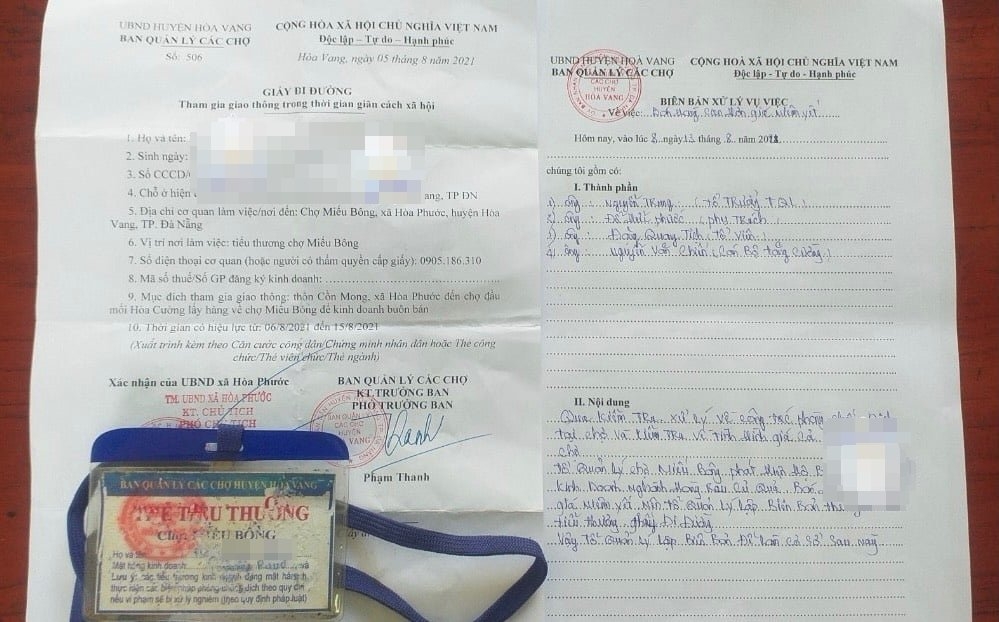 UBND HUYỆN HÒA VANG
BAN QUẢN LÝ CÁC CHỢ
Số: 506
CỘNG HÒA XÃ HỘI CHỦ NGHĨA VIỆT NAM
Độc lập – Tự do – Hạnh phúc
Hòa Vang, ngày 05 tháng 8 năm 2021
GIẤY ĐI ĐƯỜNG
Tham gia giao thông trong thời gian giãn cách xã hội
1. Họ và tên:
2. Sinh ngày:
3. Số CCCD/
4. Chỗ ở hiện ang, TP ĐN
5. Địa chỉ cơ quan làm việc/nơi đến: Chợ Miếu Bông, xã Hòa Phước, huyện Hòa
Vang, TP. Đà Nẵng
6. Vị trí nơi làm việc: tiểu thương chợ Miếu Bông
7. Số điện thoại cơ quan (hoặc người có thẩm quyền cấp giấy): 0905.186.310
8. Mã số thuế/Số GP đăng ký kinh doanh:
9. Mục đích tham gia giao thông: thôn Cồn Mong, xã Hòa Phước đến chợ đầu
mối Hòa Cường lấy hàng về chợ Miếu Bông để kinh doanh buôn bán
10. Thời gian có hiệu lực từ: 06/8/2021 đến 15/8/2021
(Xuất trình kèm theo Căn cước công dân/Chứng minh nhân dân hoặc Thẻ công
chức/Thẻ viên chức/Thẻ ngành)
Xác nhận của UBND xã Hòa Phước
TM. UBND XÃ HÒA PHƯỚC
KT. CHỦ TỊCH
PHÓ CHỦ TỊCH
BAN QUẢN LÝ CÁC CHỢ
KT.TRƯỞNG BAN
PHÓ TRƯỞNG BAN
BAN QUẢN LÝ
CÁC CHỢ
HUYỆN
HÒA VANG
Phạm Thanh
BAN QUẢN LÝ CÁC CHỢ HUYỆN HÒA VANG
THẺ TIỂU THƯƠNG
Chợ: MIẾU BÔNG
Họ và tên:
Mặt hàng kinh doanh:
Lưu ý: các tiểu thương kinh doanh đúng mặt hàng
thực hiện các biện pháp phòng chống dịch theo quy định
nếu vi phạm sẽ bị xử lý nghiêm (theo quy định pháp luật)
UBND HUYỆN HOÀ VANG
BAN QUẢN LÝ CÁC CHỢ
CÁC CHỢ
HUYỆN
HÒA VANG
CỘNG HOÀ XÃ HỘI CHỦ NGHĨA VIỆT NAM
Độc lập - Tự do - Hạnh phúc
BIÊN BẢN XỬ LÝ VỤ VIỆC
Về việc: Bán hàng cao hơn giá niêm yết
Hôm nay, vào lúc 8 ngày 13 tháng 8 năm 2021
chúng tôi gồm có:
I. Thành phần
1) ông: Nguyễn Trung (Tổ Trưởng TQL)
2) ông: Đỗ Phước (phụ Trách)
3) ông: Đặng Quang Tích (Tổ viên)
4) ông: Nguyễn Văn Chiến (Cán Bộ tăng cường)
II. Nội dung
Qua kiểm Tra xử lý về công tác phòng chống dịch
tại chợ và kiểm Tra về Tình hình giá cả
chợ
Tổ Quản Lý chợ Miếu Bông phát hiện hộ B
kinh Doanh nghành hàng Rau Củ Quả Bán
giá niêm yết Nên tổ Quản Lý Lập Biên Bản thu
tiểu thương giấy Đi Đường
Vậy Tổ Quản Lý Lập Biên Bản Để làm cơ Sở Sau này